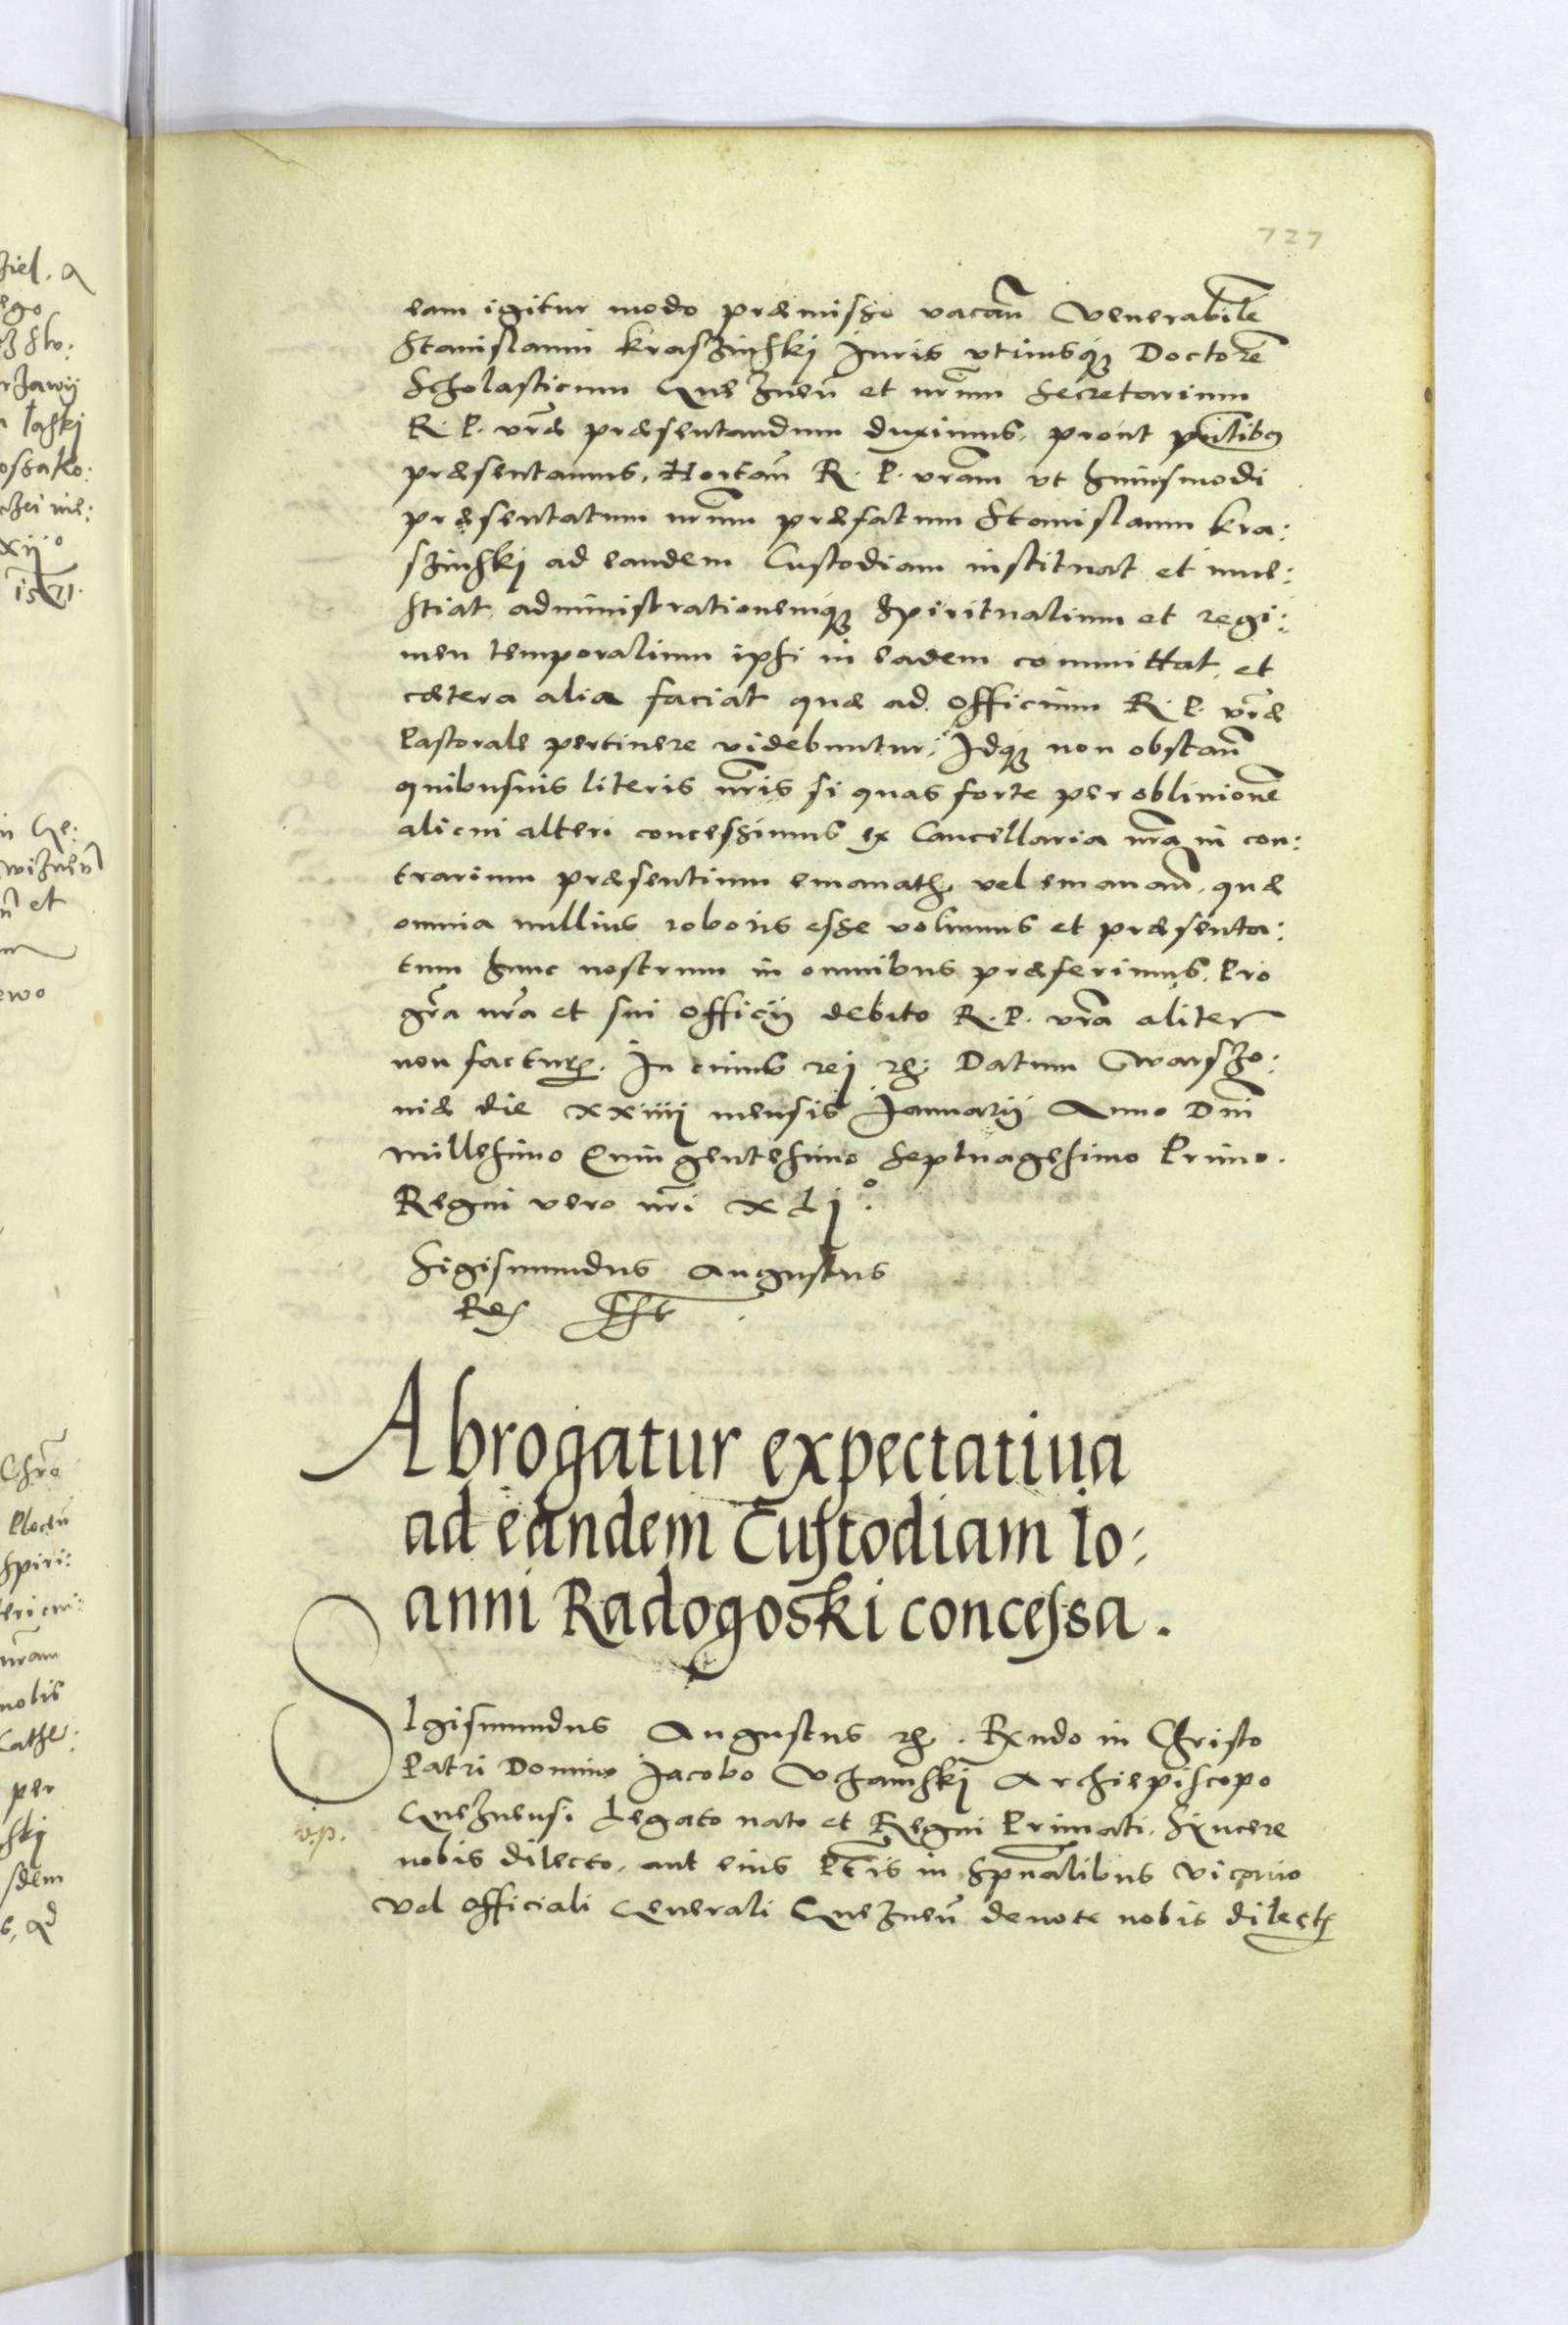 727
eam igitur modo præmisso vacan̄ Venerabilē
Stanislaum Kraszinskj Juris vtriusq; Doctorē
Scholasticum Gneznen̄ et nr̄um Secretarium
R. P. vr̄æ præsentandum duximus, prout pn̄tibus
præsentamus, Hortan̄ R. P. vr̄am vt huiusmodi
præsentatum nr̄um præfatum Stanislaum Kra:
szinskj ad eandem Custodiam instituat et inue:
stiat, administrationemq; Spiritualium et regi:
men temporalium ipsi in eadem committat, et
cætera alia faciat quæ ad officium R. P. vr̄æ
Pastorale pertinere videbuntur, Idq; non obstan̄
quibusuis literis nr̄is si quas forte per obliuionē
alicui alteri concessimus ex Cancellaria nr̄a in con:
trarium præsentium emanatis, vel emanan̄, quæ
omnia nullius roboris esse volumus et præsenta:
tum hunc nostrum in omnibus præferimus, Pro
gr̄a nr̄a et sui officij debito R. P. vr̄a aliter
non factura. In cuius rej etc. Datum Warszo:
uiæ die xxiiij mensis Januarij Anno Dn̄i
millesimo Quingentesimo Septuagesimo Primo.
Regni vero nr̄i xlj°.
Sigismundus Augustus
Rex sst
Abrogatur expectatiua
ad eandem Custodiam Io:
anni Radogoski concessa.
SIgismundus Augustus etc. Rn̄do in Christo
Patri Domino Jacobo Vchanskj Archiepiscopo
Gneznensi Legato nato et Regni Primati, Syncere
v.p.
nobis dilecto, aut eius P̄tis in Spūalibus Vicario
Vel Officiali Generali Gneznen̄ deuote nobis dilectis